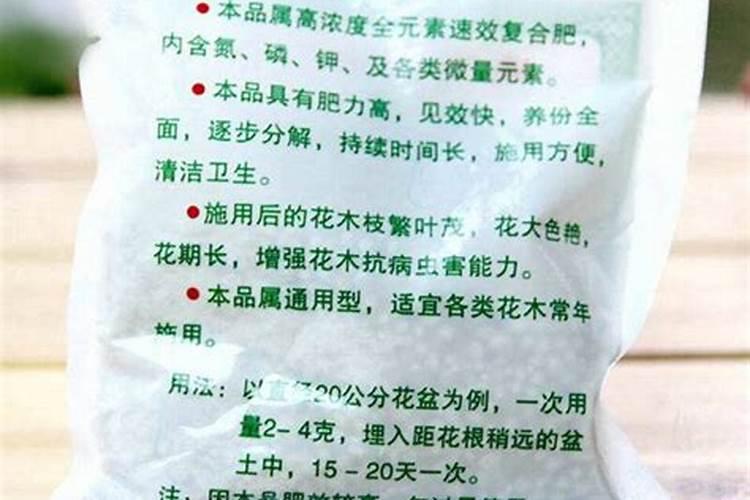 ●本品属高浓度全元素速效复合肥，
内含氮、磷、钾、及各类微量元素。
●本品具有肥力高，见效快，养份全
面，逐步分解，持续时间长，施用方便，
清洁卫生。
●施用后的花木枝繁叶茂，花大色艳，
花期长，增强花木抗病虫害能力。
●本品属通用型，适宜各类花木常年
施用。
用法：以直径20公分花盆为例，一次用
量2-4克，埋入距花根稍远的盆
土中，15-20天一次。
注：因本品肥效较高，